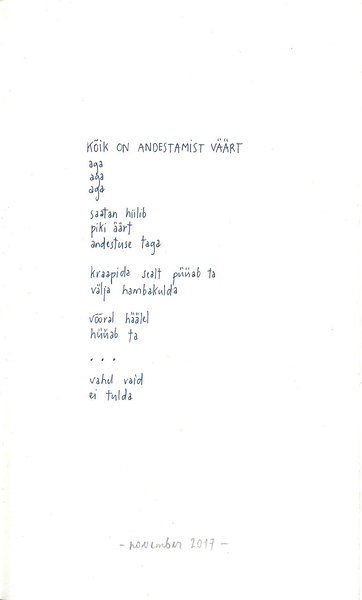 KÕIK ON ANDESTAMIST VÄÄRT
aga
aga
aga
saatan hiilib
piki äärt
andestuse taga
kraapida sealt püüab ta
välja hambakulda
võõral häälel
hüüab ta
. . .
vahel vaid
ei tulda
- november 2017 -